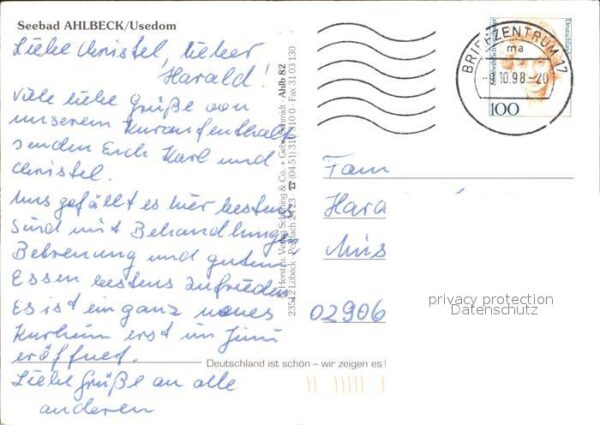 Seebad AHLBECK/Usedom
Liebe Christel, lieber
Harald!
Viele liebe Grüße von
unserem Kuraufenthalt
senden Euch Karl und
Christel.
Uns gefällt es hier bestens
sind mit Behandlung,
Betreuung und gutem
Essen bestens zufrieden
Es ist ein ganz neues
Kurheim erst im Juni
eröffnet.
Liebe Grüße an alle
anderen
Deutschland ist schön – wir zeigen es!
23512 Lübeck · Postfach 24 23 ☎ (04 51) 31 0 Fax 31 03 130
Ahlb 82
BRIEFZENTRUM 17
ma
10.98-20
100
Deutschland
Fam
Hara
02906
privacy protection
Datenschutz